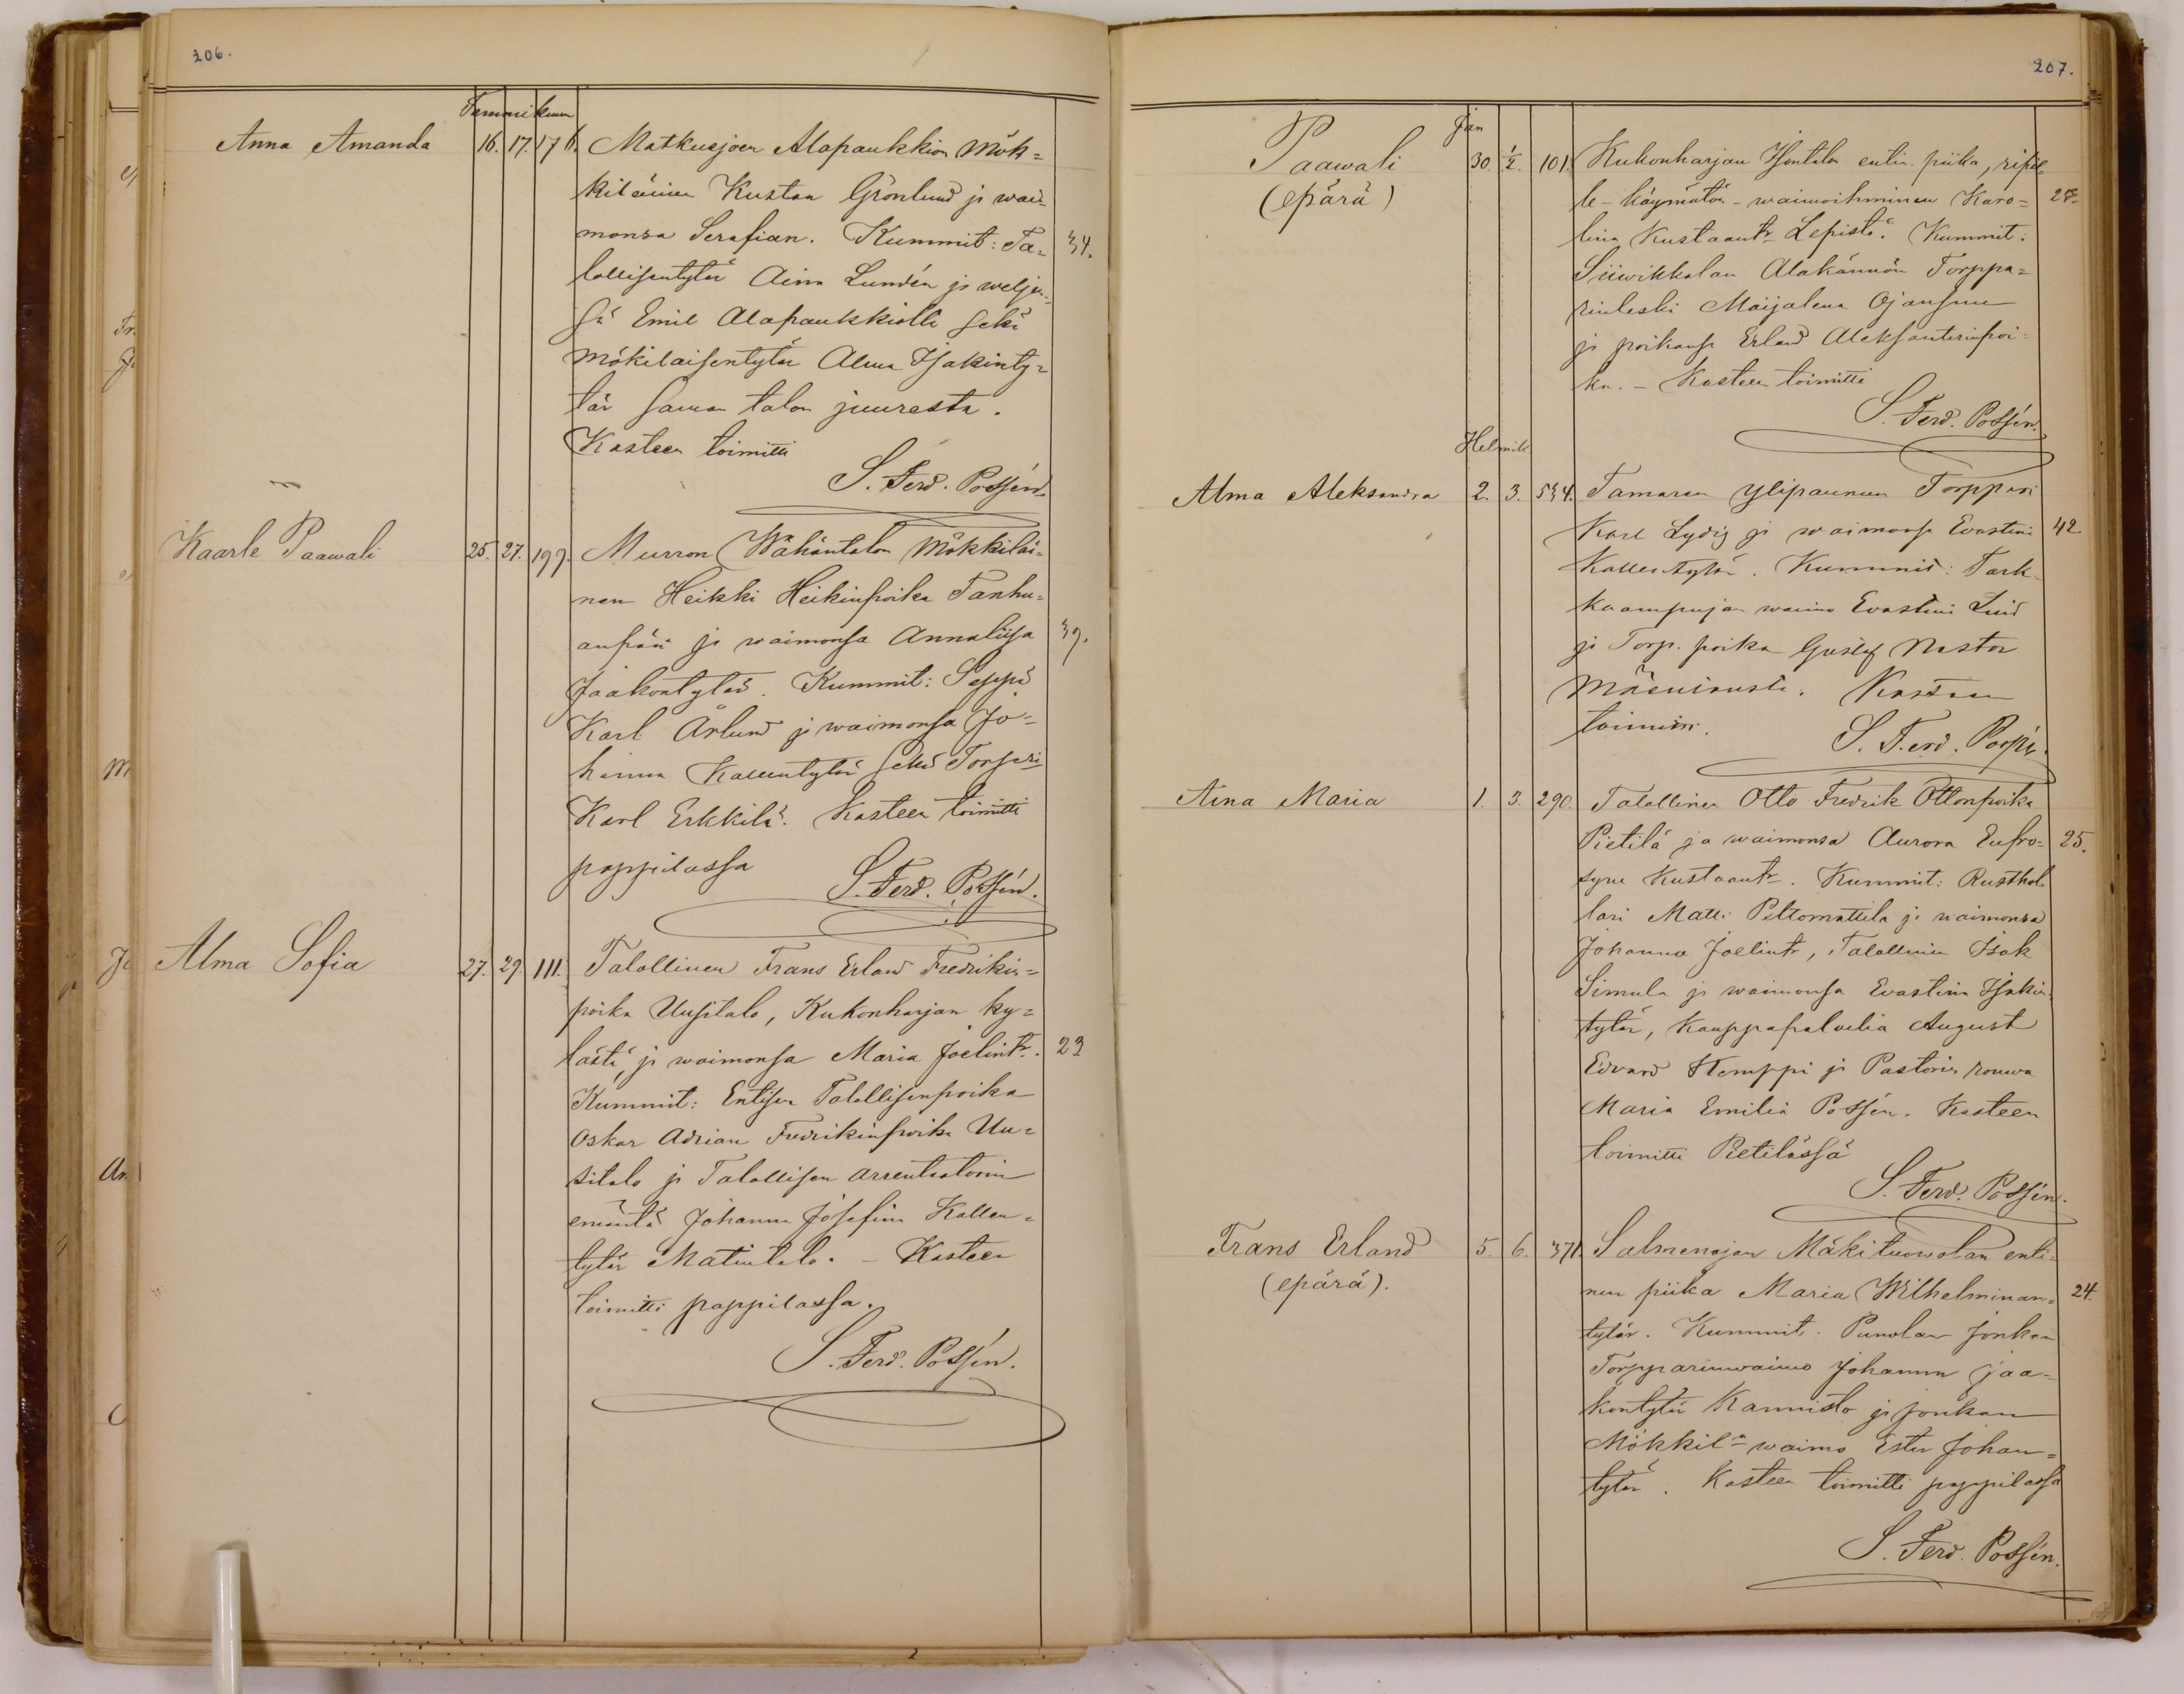 206.
Tammikuun
Anna Amanda 16. 17. 176. Matkusjoen Alapaukkion Mök=
kiläinen Kustaa Grönlund ja wai=
monsa Serafian. Kummit: Ta= 34.
lollisentytär Aina Lundén ja weljen=
sä Emil Alapaukkiolta sekä
Mökiläisentytär Alma Isakinty=
tär saman talon juuresta.
Kasteen toimitti
S. Ferd. Possén.
Kaarle Paawali 25. 27. 199. Murron Wähäntalon Mökkiläi=
nen Heikki Heikinpoika Tanhu=
anpää ja waimonsa Annaliisa 39.
Jaakontytär. Kummit: Seppä
Karl Ärlund ja waimonsa Jo=
hanna Kallentytär sekä Torppari
Karl Erkkilä. Kasteen toimitti
pappilassa
S. Ferd. Possén.
Alma Sofia 27. 29. 111. Talollinen Frans Erland Fredrikin=
poika Uusitalo, Kukonharjan ky=
lästä, ja waimonsa Maria Joelintr. 23
Kummit: Entisen Talollisenpoika
Oskar Adrian Fredrikinpoika Uu=
sitalo ja Talollisen arrentaatorin
emäntä Johanna Josefina Kallen=
tytär Matintalo. – Kasteen
toimitti pappilassa.
S. Ferd. Possén.
207.
Jan
Paawali 30. 1/2. 101. Kukonharjan Isontalon entin. piika, ripil=
(epärä) le-käymätön-waimoihminen Karo= 27.
lina Kustaantr Lepistö. Kummit:
Siiwikkalan Alakännön Torppa=
rinleski Maijalena Ojansuu
ja poikansa Erland Aleksanterinpoi=
ka. – Kasteen toimitti
S. Ferd. Possén.
Helmik
Alma Aleksandra 2. 3. 534. Tamaren Ylipaunun Torppari
Karl Lydig ja waimonsa Evastina 42.
Kallentytär. Kummit: Tark=
kaampujan waimo Evastina Lind
ja Torp. poika Gustaf Nestor
Mäensivusta. Kasteen
toimitti.
S. Ferd. Possén.
Aina Maria 1. 3. 290. Talollinen Otto Fredrik Ottonpoika
Pietilä ja waimonsa Aurora Eufro= 25.
syne Kustaantr. Kummit: Rusthol=
lari Matti Peltomattila ja waimonsa
Johanna Joelintr, Talollinen Isak
Simula ja waimonsa Evastina Isakin=
tytär, Kauppapalvelia August
Edvard Kemppi ja Pastorin rouwa
Maria Emilia Possén. Kasteen
toimitti Pietilässä
S. Ferd. Possén.
Frans Erland 5. 6. 371. Salmenojan Mäkituowolan enti=
(epärä). nen piika Maria Wilhelminan= 24.
tytär. Kummit: Punolan Jonkan
Torpparinwaimo Johanna Jaa=
kontytär Kannisto ja Jonkan
Mökkil:n waimo Ester Johan=
tytär. Kasteen toimitti pappilassa
S. Ferd. Possén.